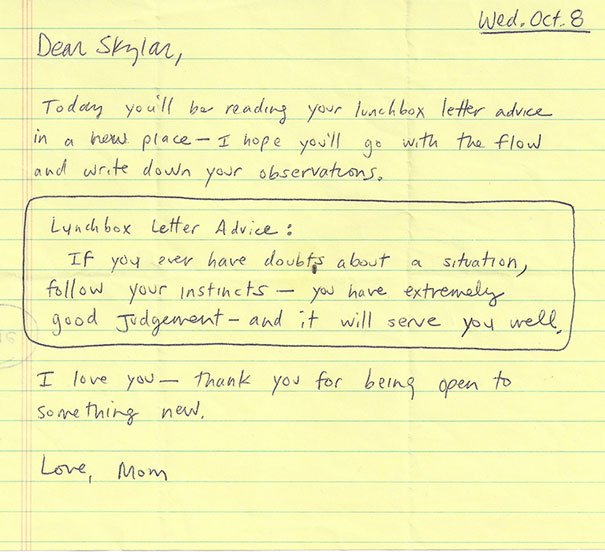 Wed. Oct. 8
Dear Skylar,
Today you'll be reading your lunchbox letter advice
in a new place — I hope you'll go with the flow
and write down your observations.
Lunchbox Letter Advice:
If you ever have doubts about a situation,
follow your instincts — you have extremely
good judgement — and it will serve you well.
I love you — thank you for being open to
something new.
Love, Mom